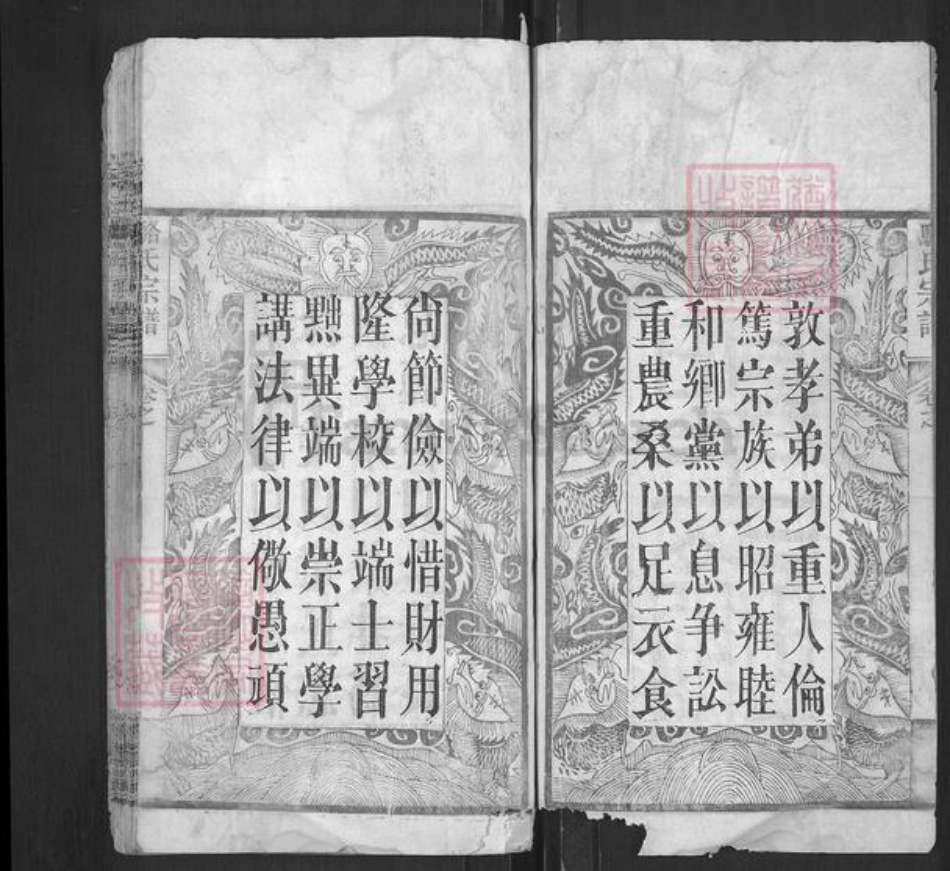 敦孝弟以重人倫
篤宗族以昭雍睦
和鄉黨以息争訟
重農桑以足衣食
尙節儉以惜財用
隆學校以端士習
黜異端以崇正學
講法律以儆愚頑
氏宗譜